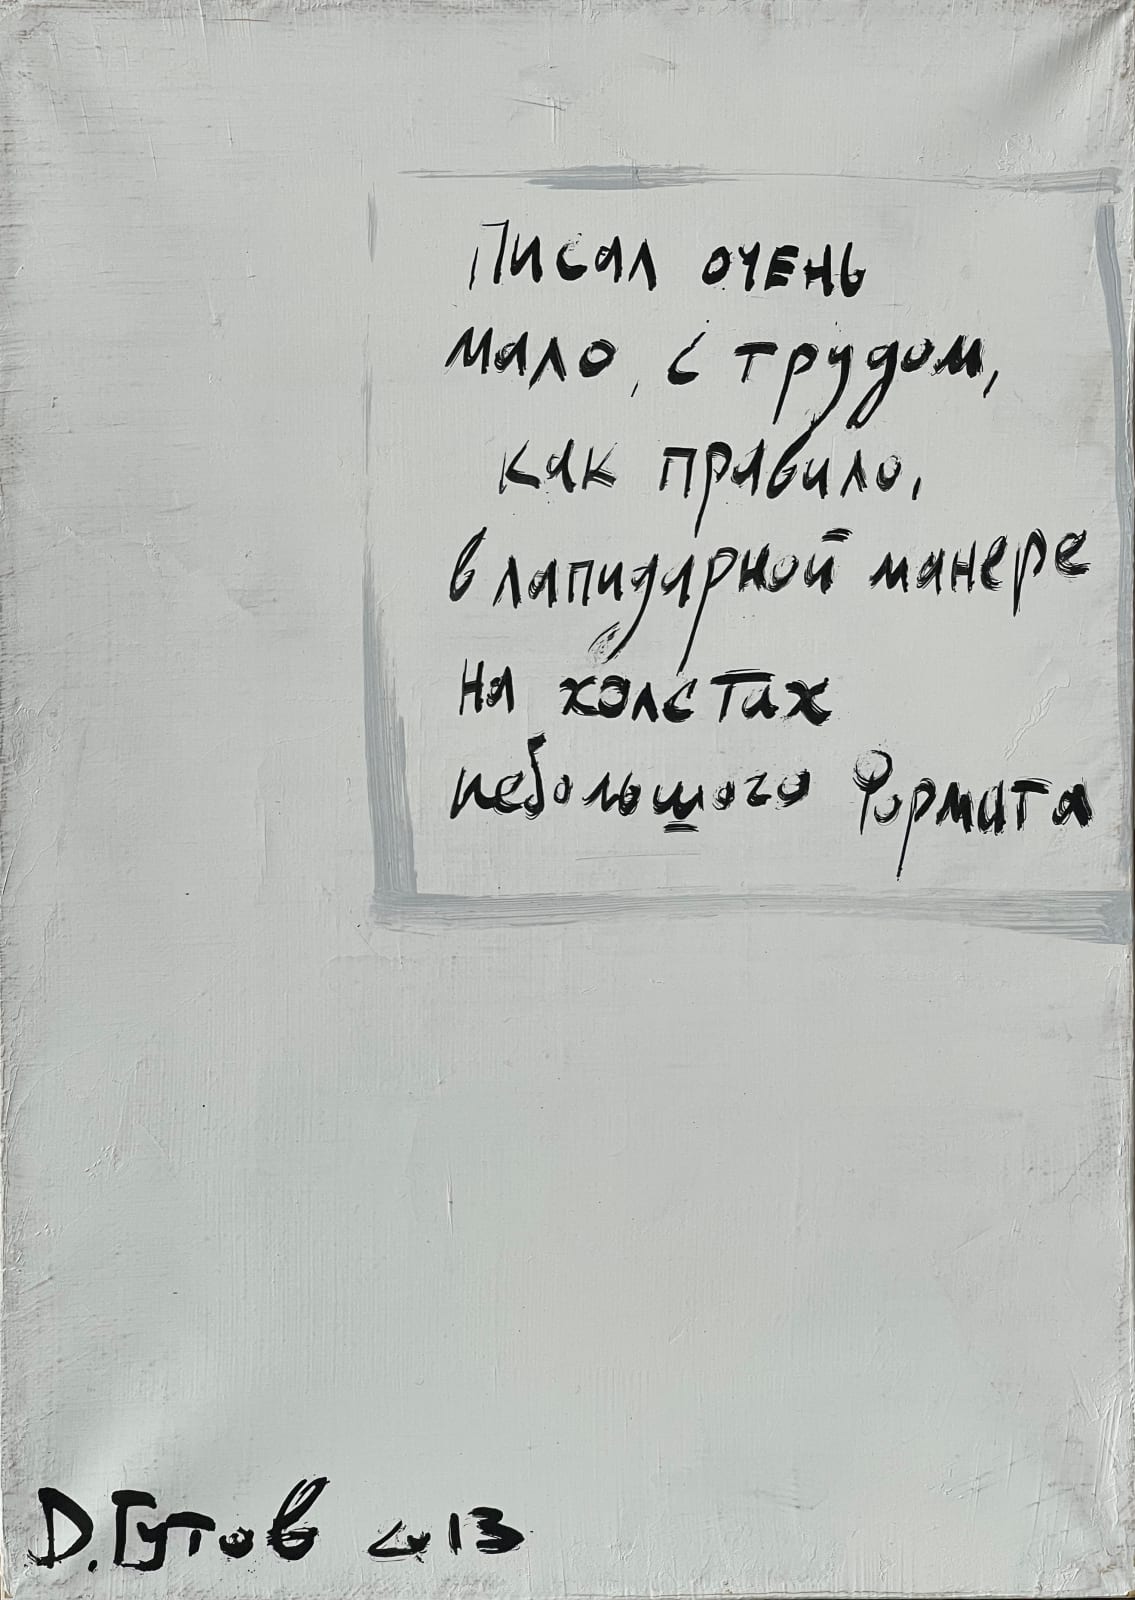 Писал очень
мало, с трудом,
как правило,
в лапидарной манере
на холстах
небольшого формата
Д. Гутов 2013